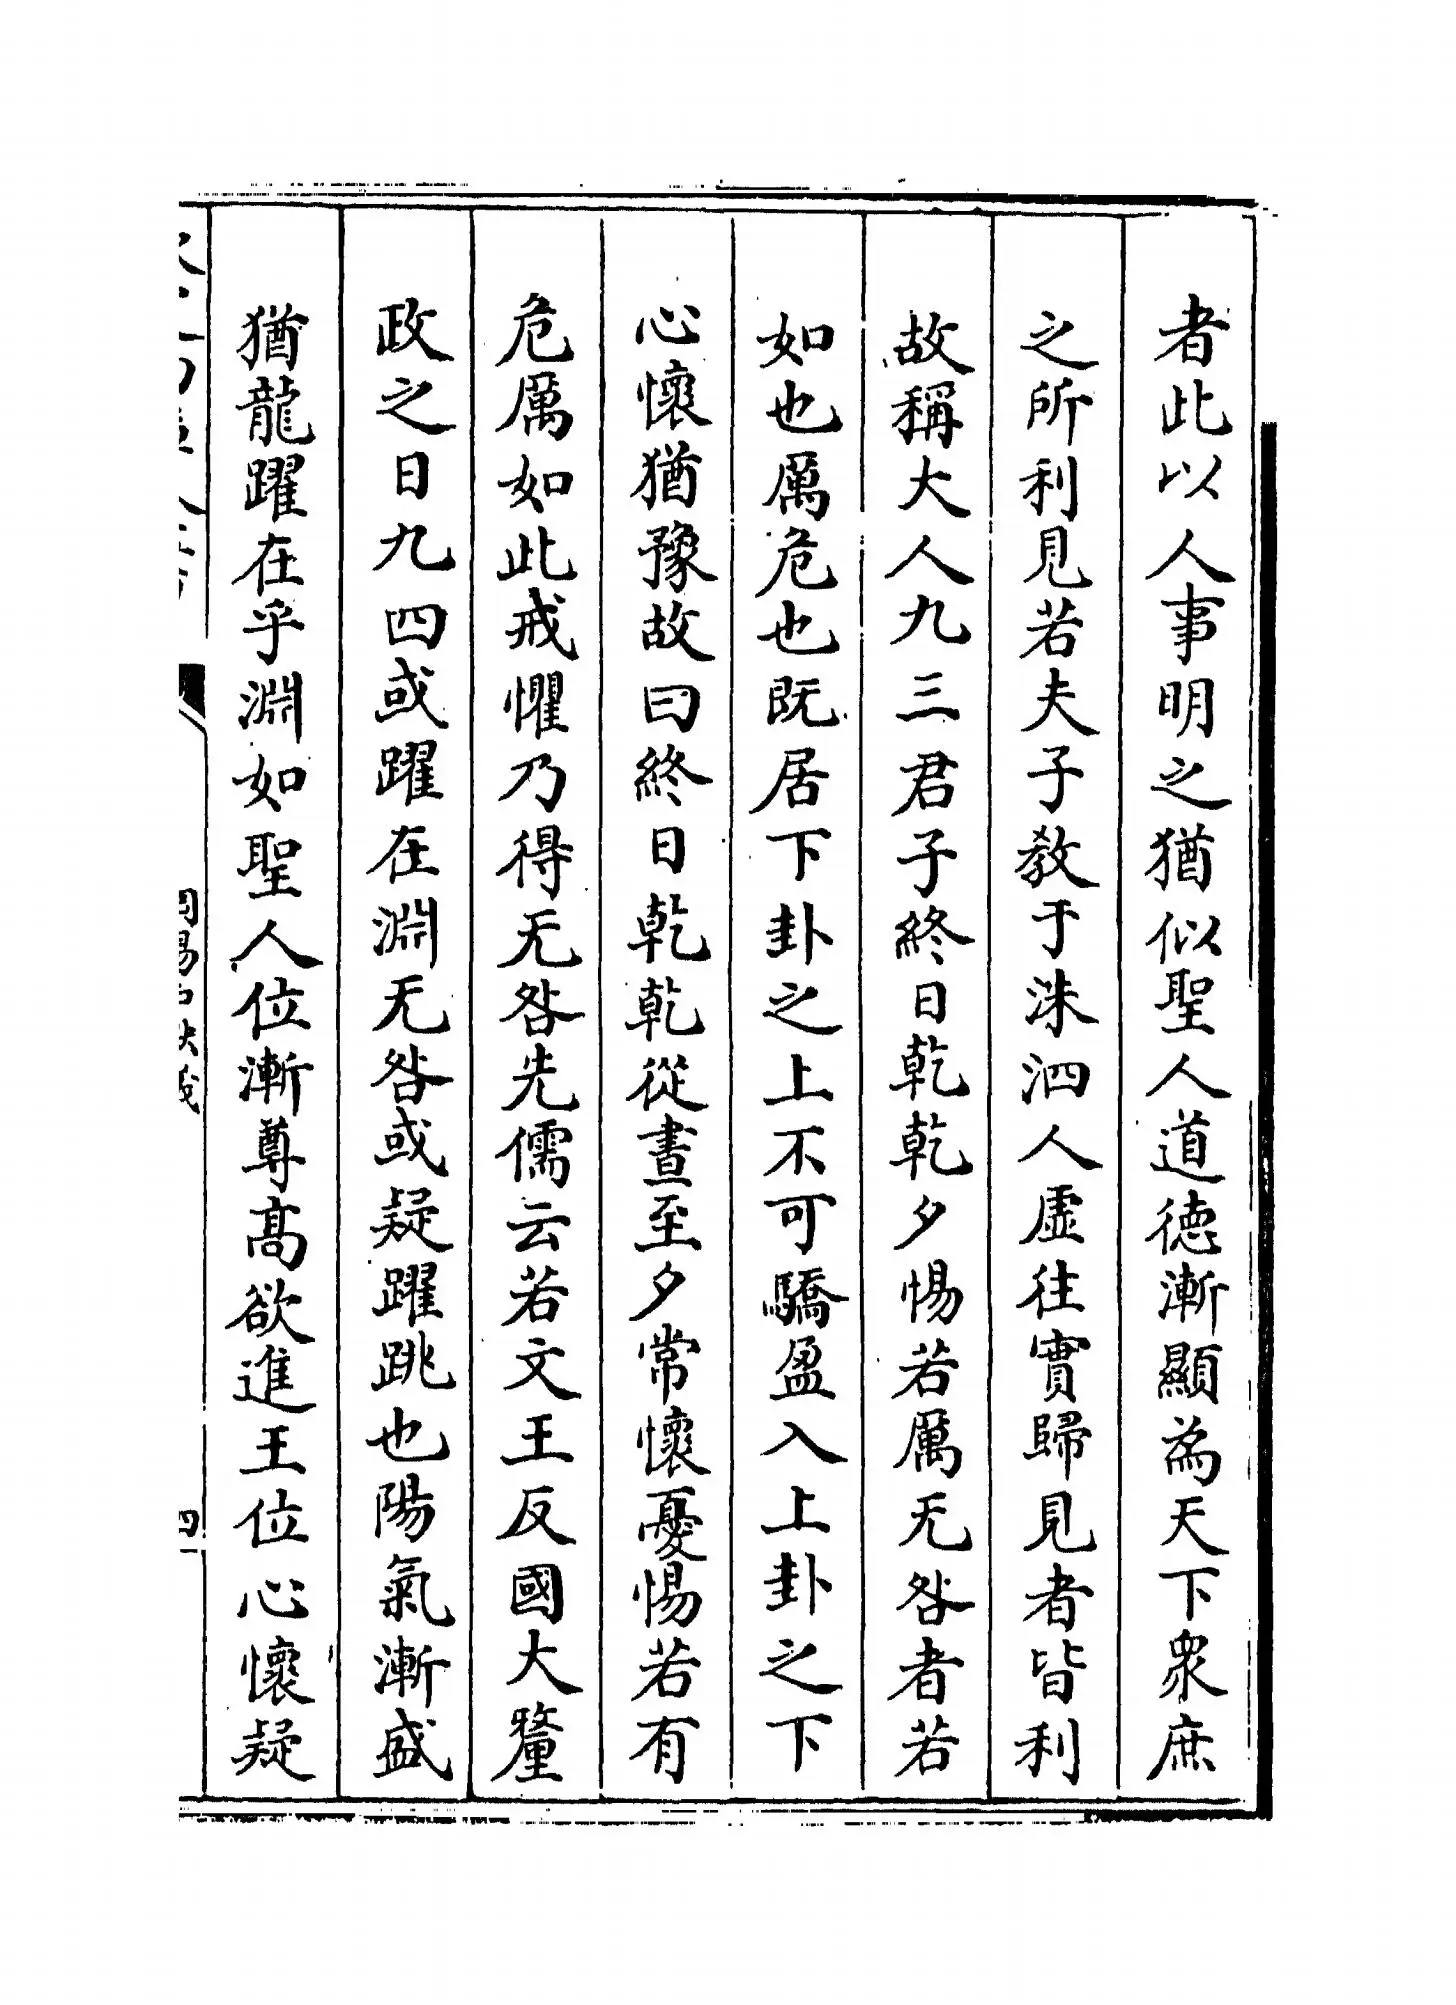 者此以人事明之猶似聖人道德漸顯為天下衆庶
之所利見若夫子教于洙泗人虛往實歸見者皆利
故稱大人九三君子終日乾乾夕惕若厲无咎者若
如也厲危也既居下卦之上不可驕盈入上卦之下
心懷猶豫故曰終日乾乾從晝至夕常懷憂惕若有
危厲如此戒懼乃得无咎先儒云若文王反國大釐
政之日九四或躍在淵无咎或疑躍跳也陽氣漸盛
猶龍躍在乎淵如聖人位漸尊髙欲進王位心懷疑
四